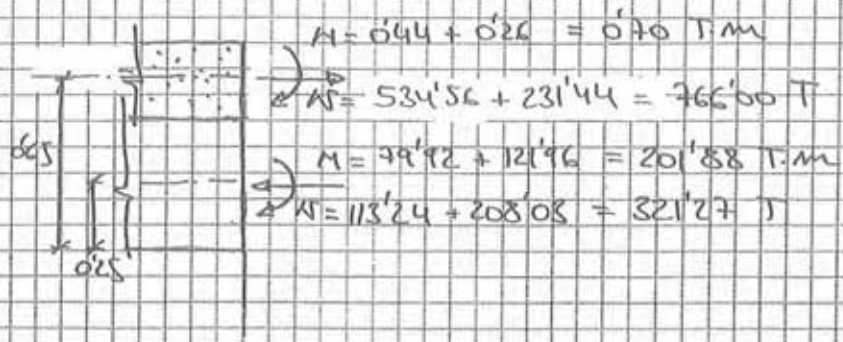 M = 0'44 + 0'26 = 0'70 T.m
N = 534'56 + 231'44 = 766'00 T
M = 79'92 + 121'96 = 201'88 T.m
N = 113'24 + 208'03 = 321'27 T
0'65
0'25